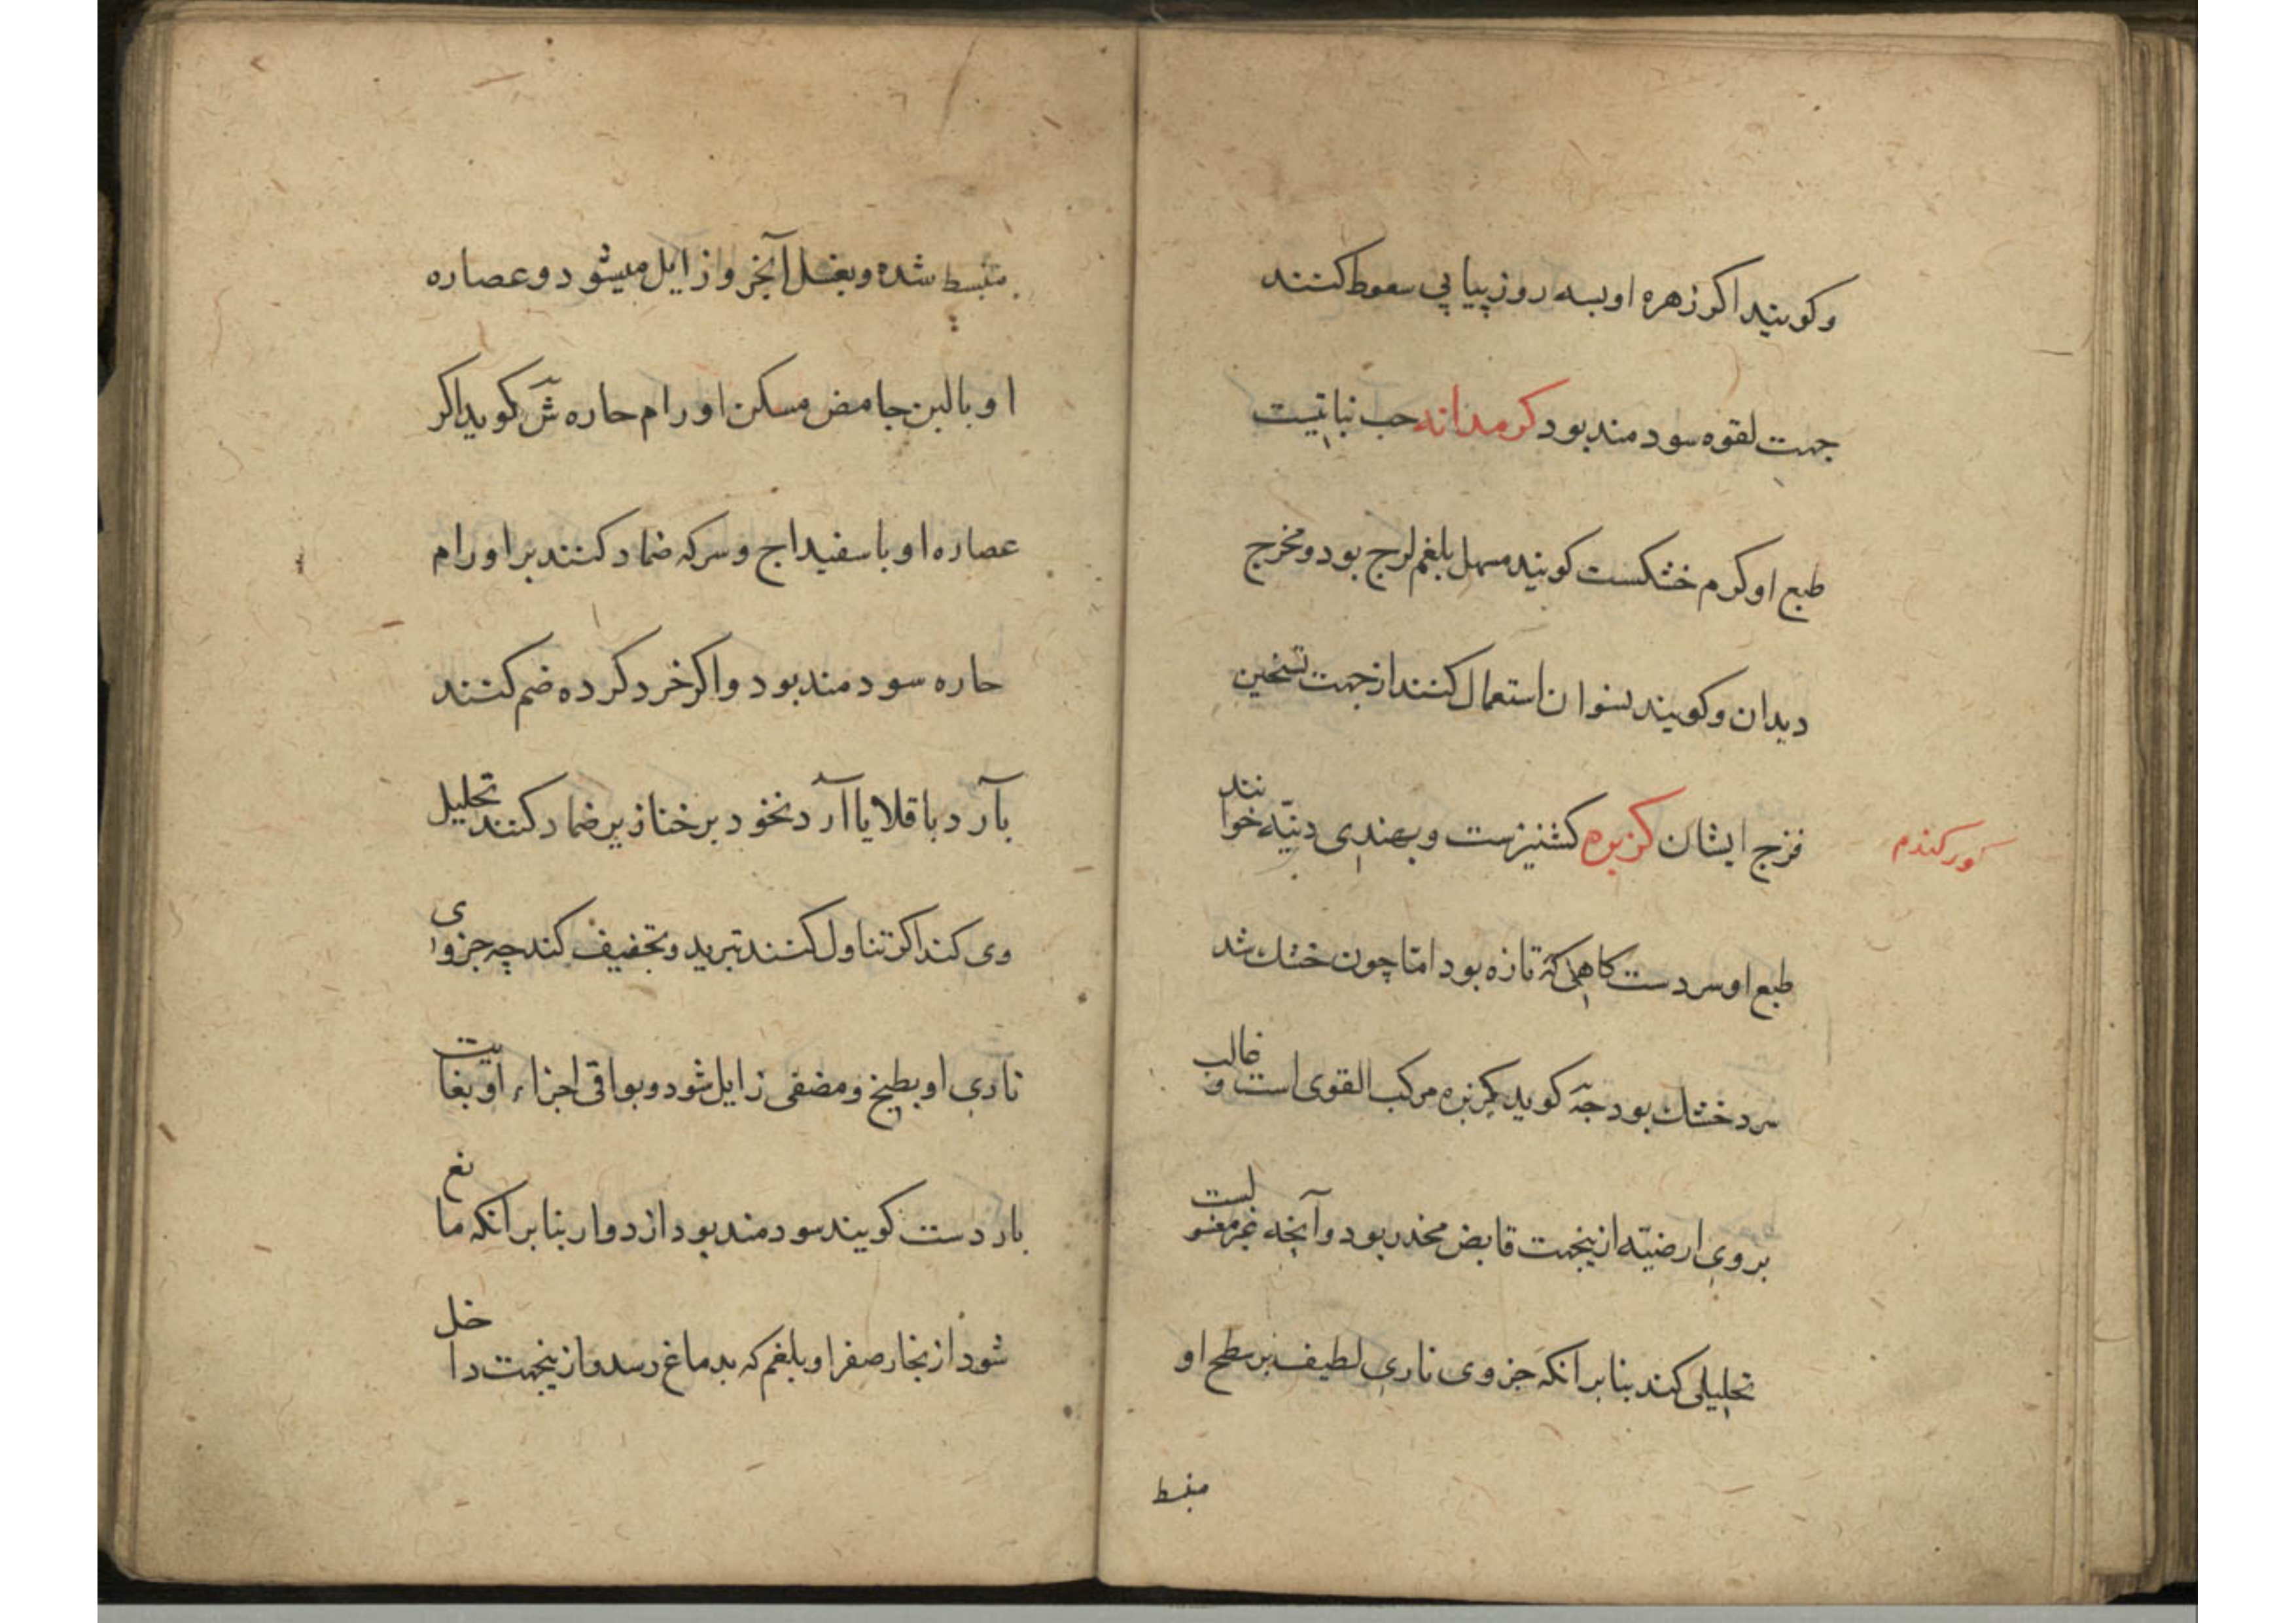 وکویند اکر زهره او بسه روز پیاپی سعوط کنند
جهت لقوه سودمند بود کرمدانه حب نباتیست
طبع او کرم خشکست کویند مسهل بلغم لزج بود و مخرج
دیدان و کویند نسوان استعمال کنند از جهت تسخین
فرج ایشان کزبره کشنیزست و بهندی دنیّه خوانند
کورکندم
طبع او سردست کاهی که تازه بود امّا چون خشك شد
سرد خشك بود جهَ کوید کزبره مرکب القوی است و غالب
بروی ارضیّه ازینجهت قابض مخدر بود و آنچه غیر مغسولست
تحلیلی کند بنا بر انکه جزوی ناری لطیف بر سطح او
منبسط
منبسط شده و بغسل آنجزو زایل میشود و عصاره
او با لبن حامض مسکن اورام حاره شَ کوید اکر
عصاره او با سفیداج و سرکه ضماد کنند بر اورام
حاره سودمند بود و اکر خرد کرده ضم کنند
بآرد باقلا یا آرد نخود بر خنازیر ضماد کنند تحلیل
وی کند اکر تناول کنند تبرید و تجفیف کند چه جزوای
ناری او بطبخ و مضغی زایل شود و بواقی اجزاء او بغایت
باردست کویند سودمند بود از دوار بنا بر انکه مانع
شود از بخار صفرا و بلغم که بدماغ رسد و ازینجهت داخل